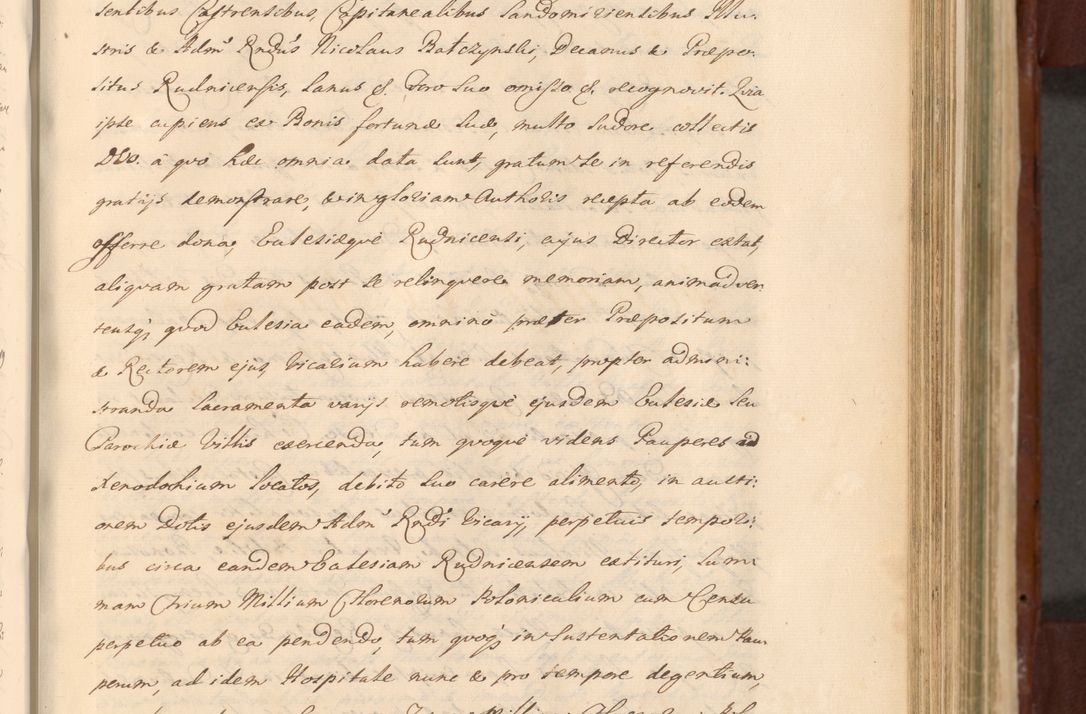 sentibus Castrensibus, Capitanealibus Sandomiriensibus Illu-
stris & Admˢ Rndˢ Nicolaus Batczynski, Decanus & Præpo-
situs Rudnicensis, Sanus &. Foro suo omisso &. recognovit. Quia
ipse cupiens ex Bonis fortunæ suæ, multo sudore collectis
DEO. à quo hæc omnia data sunt, gratum se in referendis
gratijs demonstrare, & in gloriam Authoris recepta ab eodem
offerre dona, Ecclesiæque Rudnicensi, cujus Director extat,
aliquam gratam post se relinquere memoriam, animadver-
tensq; quod Ecclesia eadem, omnino præter Præpositum
& Rectorem ejus, Vicarium habere debeat, propter admini:
stranda Sacramenta varijs remotisque ejusdem Ecclesiæ seu
Parochiæ Villis exercenda, tum quoque videns Pauperes ad
Xenodochium locatos, debito suo carere alimento, in aucti:
onem Dotis ejusdem Admˢ Rndi Vicarij, perpetuis tempori:
bus circa eandem Ecclesiam Rudnicensem extituri, Sum-
mam Trium Millium Florenorum Polonicalium cum Censu
perpetuo ab ea pendendo, tum quoq; in Sustentationem Pau-
perum, ad idem Hospitale nunc & pro tempore degentium,